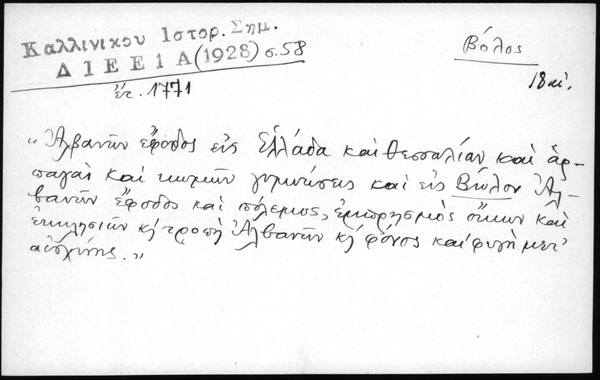 Καλλινίκου Ιστορ. Σημ.
ΔΙΕΕ 1 Α (1928) σ. 58
ἔτ. 1771
Βόλος
18 αἰ.
"Ἀλβανῶν ἔφοδος εἰς Ἑλλάδα καὶ Θεσσαλίαν καὶ ἁρ-
παγαὶ καὶ κωμῶν γυμνώσεις καὶ εἰς Βῶλον Ἀλ-
βανῶν ἔφοδος καὶ πόλεμος, ἐμπρησμὸς οἴκων καὶ
ἐκκλησιῶν κ' τροπὴ Ἀλβανῶν κ' φόνος καὶ φυγὴ μετ'
αἰσχύνης."